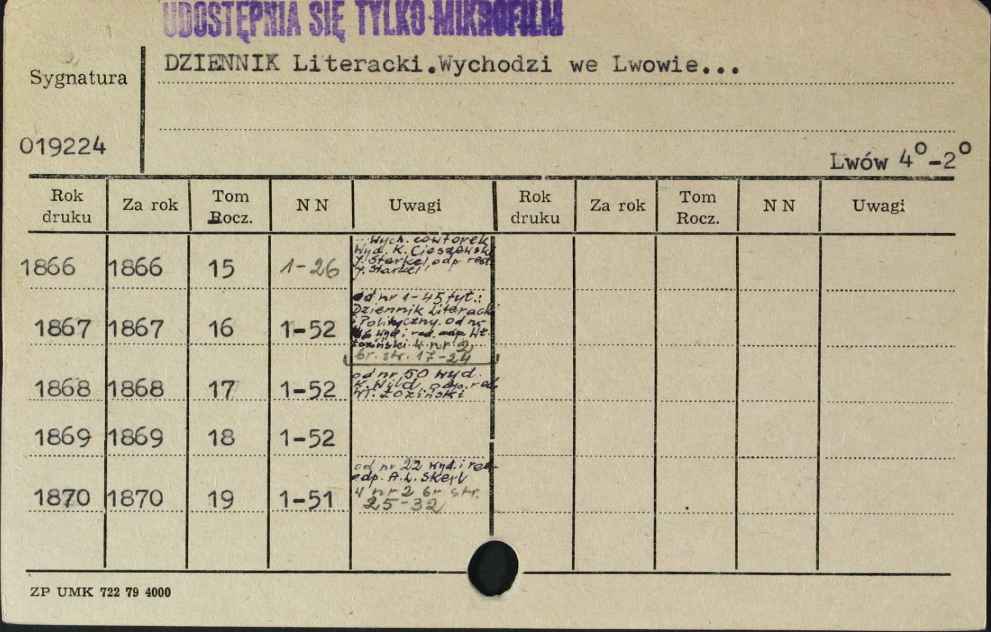 UDOSTĘPNIA SIĘ TYLKO MIKROFILM
DZIENNIK Literacki.Wychodzi we Lwowie...
Sygnatura
019224
Lwów 4°-2°
Rok druku Za rok Tom Rocz. NN Uwagi Rok druku Za rok Tom Rocz. NN Uwagi
1866 1866 15 1-26
...Wych. co wtorek
Wyd. K. Cieszewski
J. Starkel, odp. red.
J. Starkel
1867 1867 16 1-52
od nr 1-45 tyt.:
Dziennik Literacki
i Polityczny. od nr
46 wyd. i red. odp. Wł.
Łoziński. 4 nr 2,
br. str. 17-24
1868 1868 17 1-52
od nr 50 wyd.
K. Wild, odp. red.
W. Łoziński
1869 1869 18 1-52
1870 1870 19 1-51
od nr 22 wyd. i red.
odp. A.L. Skerl
4 nr 2 br str.
25-32
ZP UMK 722 79 4000